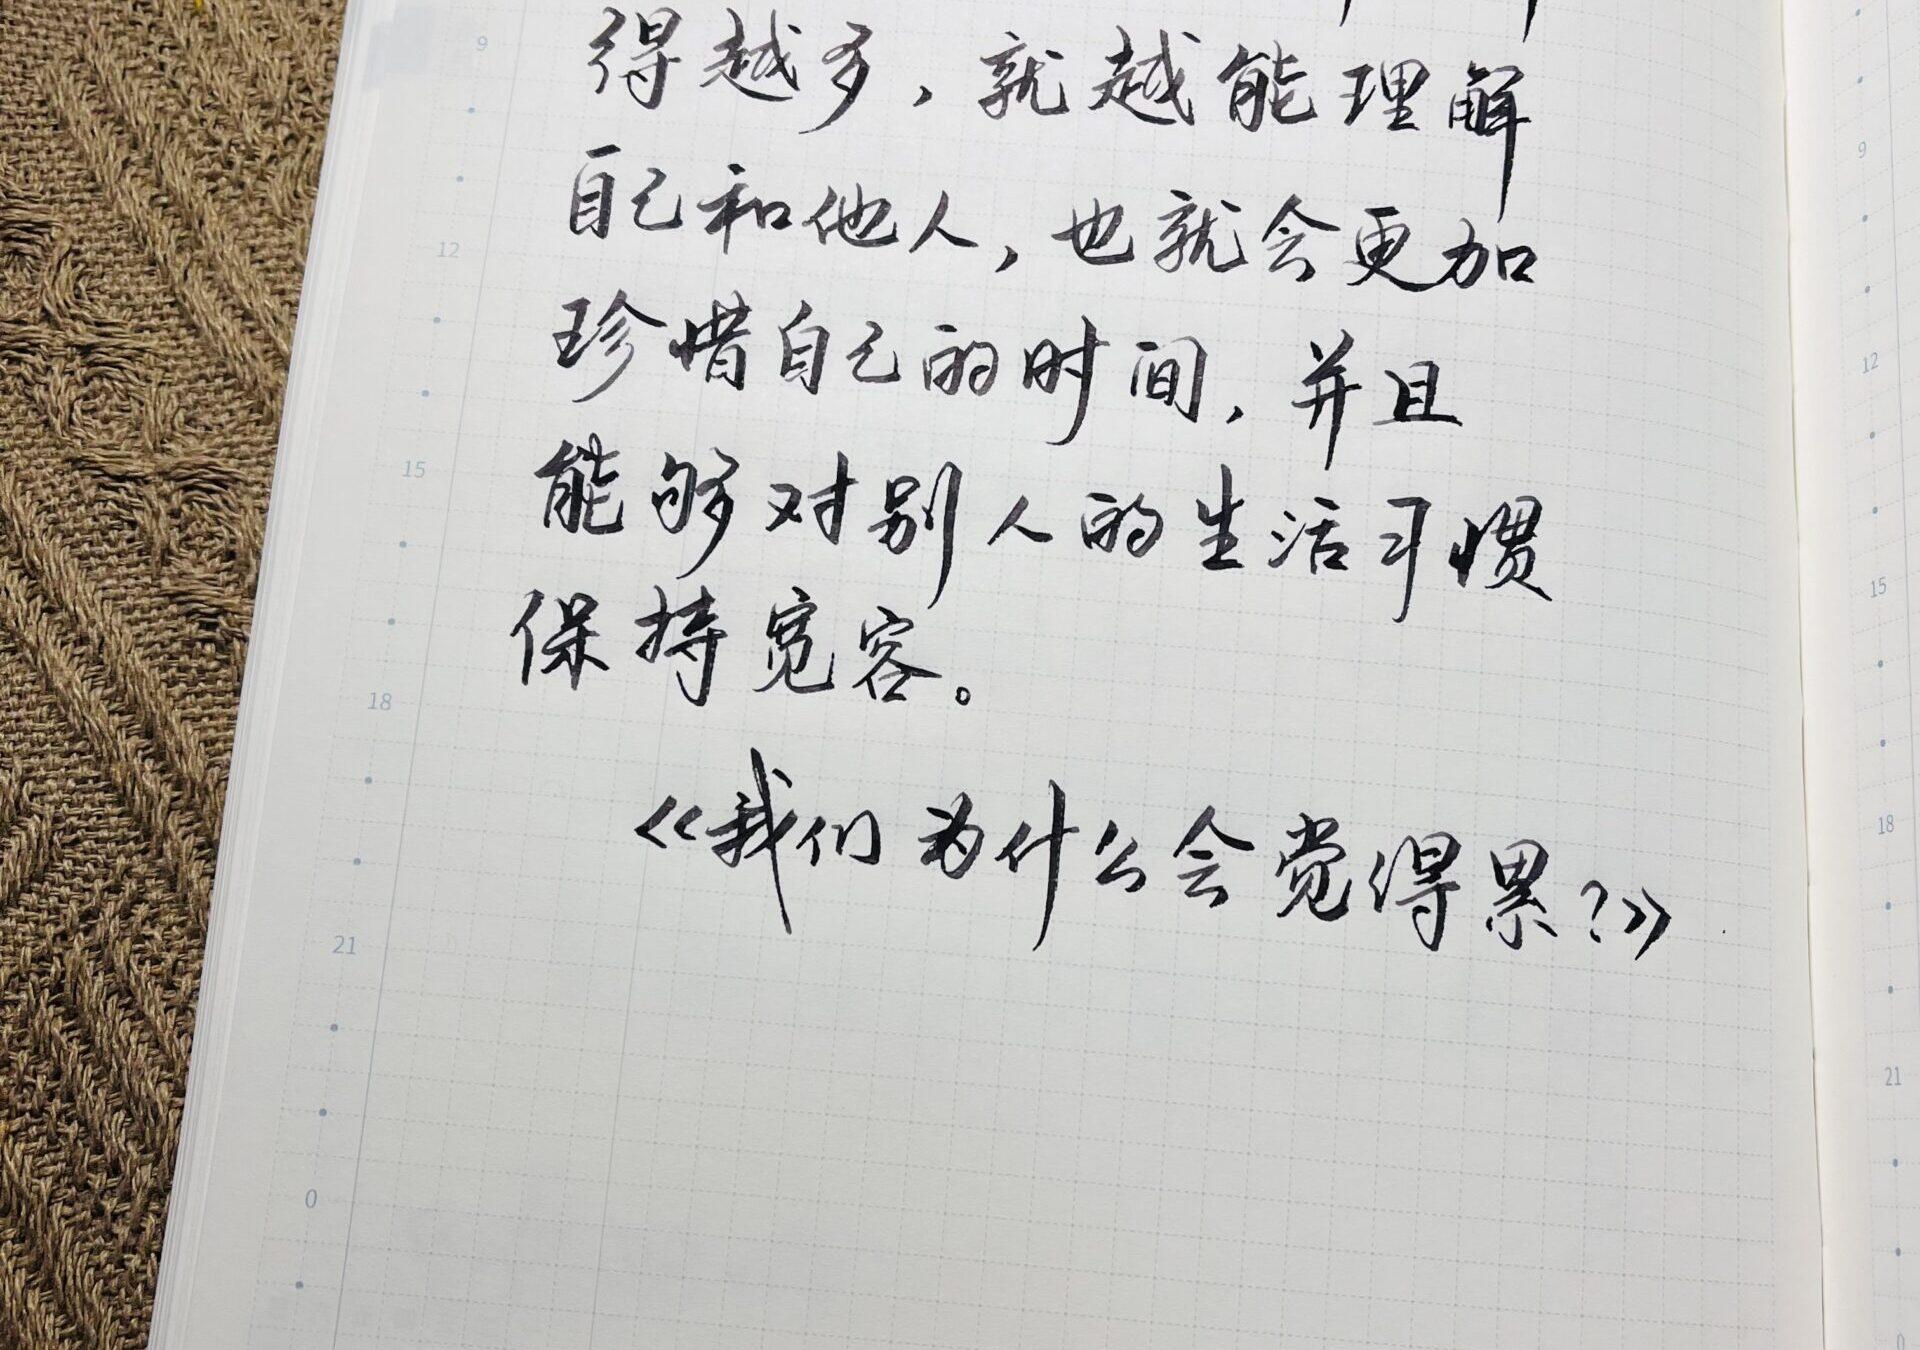 得越多，就越能理解
自己和他人，也就会更加
珍惜自己的时间，并且
能够对别人的生活习惯
保持宽容。
《我们为什么会觉得累?》
9
12
15
18
21
0
9
12
15
18
21
0